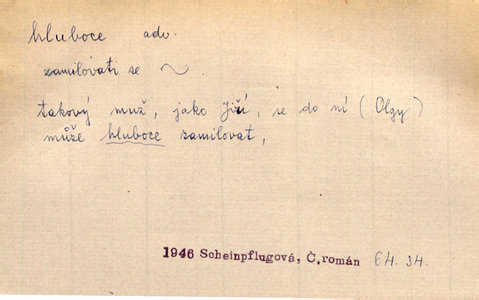 hluboce adv.
zamilovati se ~.
takový muž, jako Jiří, se do ní (Olgy)
může hluboce zamilovat,
1946 Scheinpflugová, Č.román 64.34.